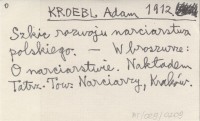 KROEBL Adam 1912
Szkic rozwoju narciarstwa
polskiego. — W broszurze:
O narciarstwie. Nakładem
Tatrz. Tow. Narciarzy, Kraków.